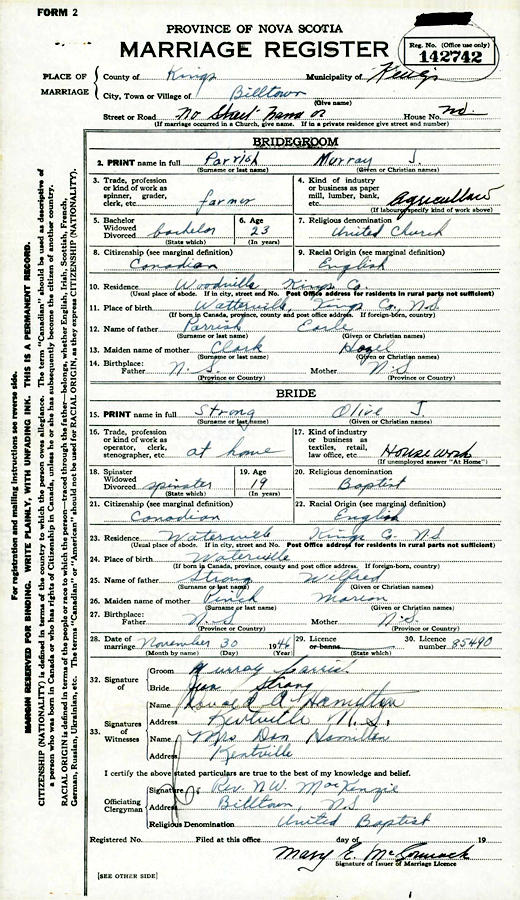 FORM 2
PROVINCE OF NOVA SCOTIA
MARRIAGE REGISTER
Reg. No. (Office use only)
142742
PLACE OF MARRIAGE
County of Kings Municipality of Kings
City, Town or Village of Billtown
(Give name)
Street or Road No Street name or House No. no.
(If marriage occurred in a Church, give name. If in a private residence give street and number)
BRIDEGROOM
2. PRINT name in full Parrish Murray J.
(Surname or last name) (Given or Christian names)
3. Trade, profession or kind of work as spinner, grader, clerk, etc. farmer
4. Kind of industry or business as paper mill, lumber, bank, etc. Agriculture
(If labourer specify kind of work above)
5. Bachelor Widowed Divorced bachelor
(State which)
6. Age 23
(In years)
7. Religious denomination United Church
8. Citizenship (see marginal definition) Canadian
9. Racial Origin (see marginal definition) English
10. Residence Woodville Kings Co.
(Usual place of abode. If in city, street and No. Post Office address for residents in rural parts not sufficient)
11. Place of birth Waterville, Kings Co., N.S.
(If born in Canada, province, county and post office address. If foreign-born, country)
12. Name of father Parrish Earle
(Surname or last name) (Given or Christian names)
13. Maiden name of mother Clark Hazel
(Surname or last name) (Given or Christian names)
14. Birthplace: Father N.S. Mother N.S.
(Province or Country) (Province or Country)
BRIDE
15. PRINT name in full Strong Olive J.
(Surname or last name) (Given or Christian names)
16. Trade, profession or kind of work as operator, clerk, stenographer, etc. at home
17. Kind of industry or business as textiles, retail, law office, etc. Housework
(If unemployed answer "At Home")
18. Spinster Widowed Divorced spinster
(State which)
19. Age 19
(In years)
20. Religious denomination Baptist
21. Citizenship (see marginal definition) Canadian
22. Racial Origin (see marginal definition) English
23. Residence Waterville Kings Co. N.S.
(Usual place of abode. If in city, street and No. Post Office address for residents in rural parts not sufficient)
24. Place of birth Waterville
(If born in Canada, province, county and post office address. If foreign-born, country)
25. Name of father Strong Wilfred
(Surname or last name) (Given or Christian names)
26. Maiden name of mother Pinch Marion
(Surname or last name) (Given or Christian names)
27. Birthplace: Father N.S. Mother N.S.
(Province or Country) (Province or Country)
28. Date of marriage November 30 1946
(Month by name) (Day) (Year)
29. Licence or banns
(State which)
30. Licence number 85490
32. Signature of
Groom Murray Parrish
Bride Jean Strong
33. Signatures of Witnesses
Name Donald A. Hamilton
Address Kentville N.S.
Name Mrs Don Hamilton
Address Kentville
I certify the above stated particulars are true to the best of my knowledge and belief.
Officiating Clergyman
Signature Rev. N.W. MacKenzie
Address Billtown, N.S
Religious Denomination United Baptist
Registered No. Filed at this office day of 19
Mary E. McCormack
Signature of Issuer of Marriage Licence
[SEE OTHER SIDE]
For registration and mailing instructions see reverse side.
MARGIN RESERVED FOR BINDING. WRITE PLAINLY, WITH UNFADING INK. THIS IS A PERMANENT RECORD.
CITIZENSHIP (NATIONALITY) is defined in terms of the country to which the person owes allegiance. The term "Canadian" should be used as descriptive of
a person who was born in Canada or who has rights of Citizenship in Canada, unless he or she has subsequently become the citizen of another country.
RACIAL ORIGIN is defined in terms of the people or race to which the person—traced through the father—belongs, whether English, Irish, Scottish, French,
German, Russian, Ukrainian, etc. The terms "Canadian" or "American" should not be used for RACIAL ORIGIN, as they express CITIZENSHIP (NATIONALITY).